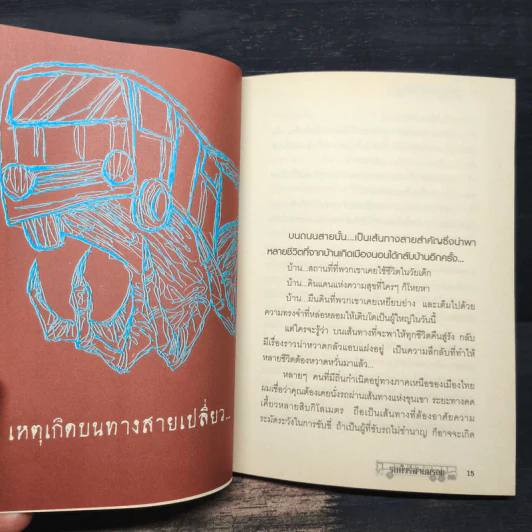 เหตุเกิดบนทางสายเปลี่ยว...
บนถนนสายนั้น...เป็นเส้นทางสายสำคัญซึ่งนำพา
หลายชีวิตที่จากบ้านเกิดเมืองนอนได้กลับบ้านอีกครั้ง...
บ้าน...สถานที่ที่พวกเขาเคยใช้ชีวิตในวัยเด็ก
บ้าน...ดินแดนแห่งความสุขที่ใครๆ ก็โหยหา
บ้าน...ผืนดินที่พวกเขาเคยเหยียบย่าง และเติมไปด้วย
ความทรงจำที่หล่อหลอมให้เติบโตเป็นผู้ใหญ่ในวันนี้
แต่ใครจะรู้ว่า บนเส้นทางที่จะพาให้ทุกชีวิตคืนสู่รัง กลับ
มีเรื่องราวน่าหวาดกลัวแอบแฝงอยู่ เป็นความลึกลับที่ทำให้
หลายชีวิตต้องหวาดหวั่นมาแล้ว...
หลายๆ คนที่มีถิ่นกำเนิดอยู่ทางภาคเหนือของเมืองไทย
ผมเชื่อว่าคุณต้องเคยนั่งรถผ่านเส้นทางแห่งขุนเขา ระยะทางคด
เคี้ยวหลายสิบกิโลเมตร ถือเป็นเส้นทางที่ต้องอาศัยความ
ระมัดระวังในการขับขี่ ถ้าเป็นผู้ที่ขับรถไม่ชำนาญ ก็อาจจะเกิด
15